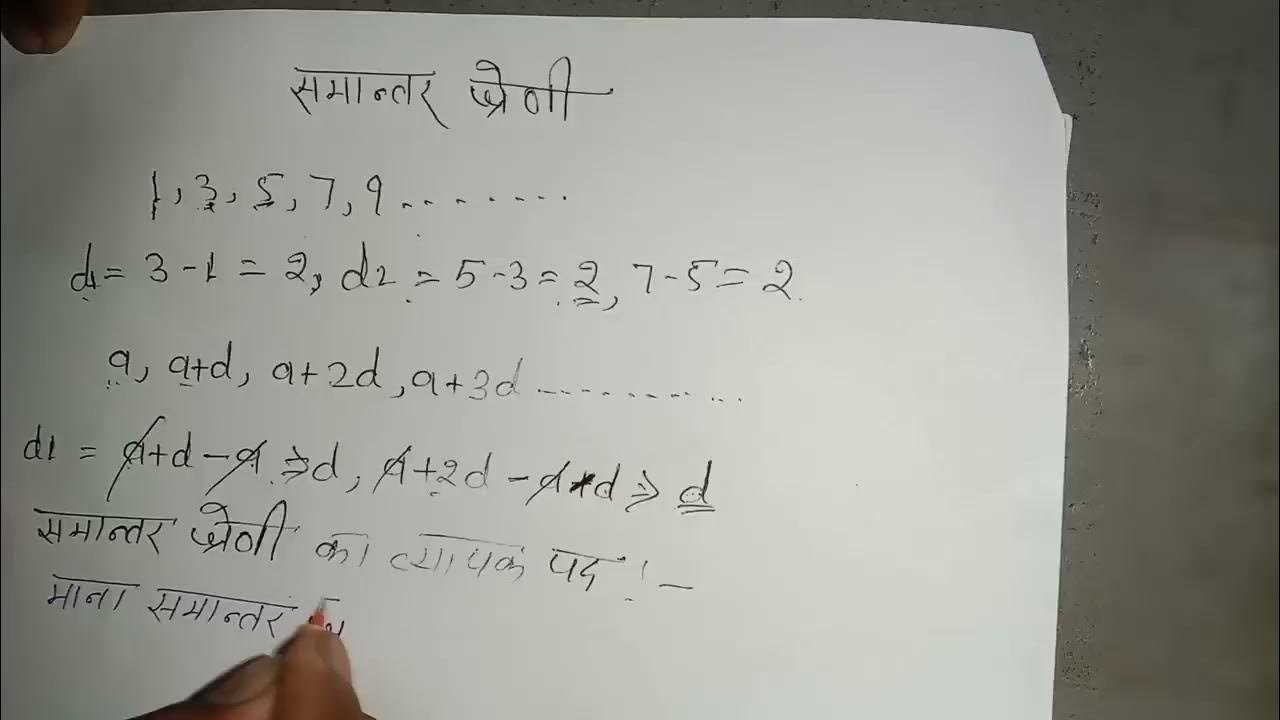 समान्तर श्रेणी
1, 3, 5, 7, 9 ........
d1 = 3 - 1 = 2, d2 = 5 - 3 = 2, 7 - 5 = 2
a, a+d, a+2d, a+3d ............
d1 = a+d - a ⇒ d, a+2d - a - d ⇒ d
समान्तर श्रेणी का व्यापक पद :-
माना समान्तर